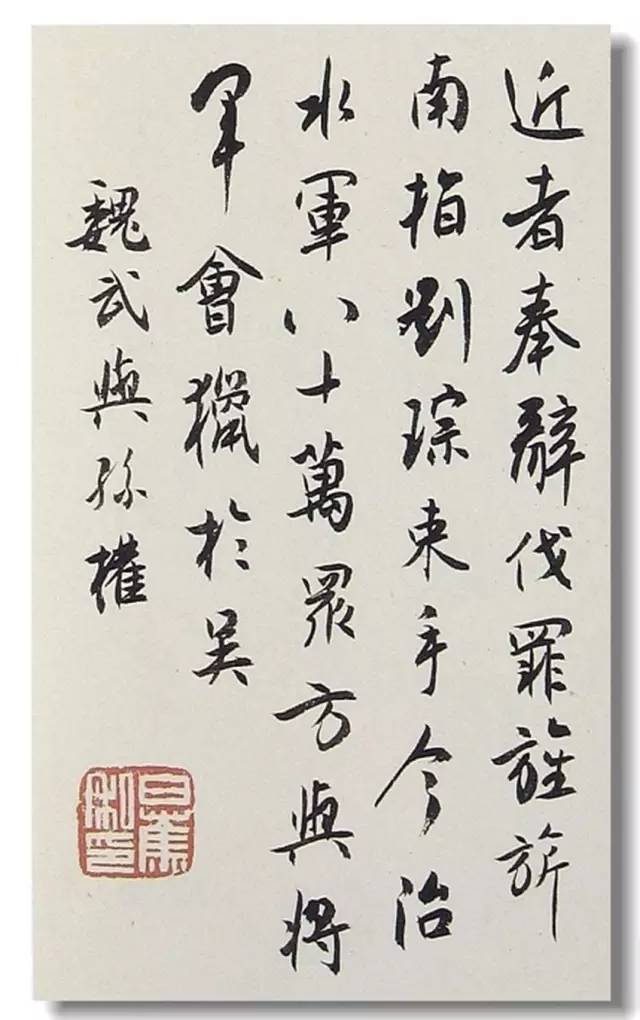 近者奉辭伐罪旌旂
南指劉琮束手今治
水軍八十萬眾方與將
軍會獵於吳
魏武與孫權
白蕉私印